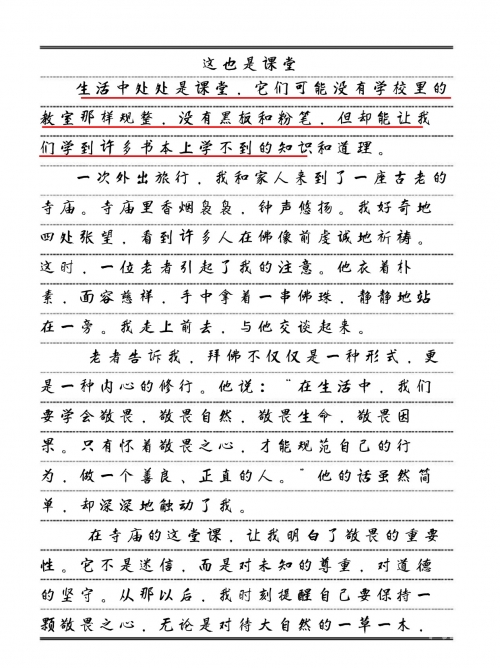 这也是课堂
生活中处处是课堂，它们可能没有学校里的
教室那样规整，没有黑板和粉笔，但却能让我
们学到许多书本上学不到的知识和道理。
一次外出旅行，我和家人来到了一座古老的
寺庙。寺庙里香烟袅袅，钟声悠扬。我好奇地
四处张望，看到许多人在佛像前虔诚地祈祷。
这时，一位老者引起了我的注意。他衣着朴
素，面容慈祥，手中拿着一串佛珠，静静地站
在一旁。我走上前去，与他交谈起来。
老者告诉我，拜佛不仅仅是一种形式，更
是一种内心的修行。他说：“在生活中，我们
要学会敬畏，敬畏自然，敬畏生命，敬畏因
果。只有怀着敬畏之心，才能规范自己的行
为，做一个善良、正直的人。”他的话虽然简
单，却深深地触动了我。
在寺庙的这堂课，让我明白了敬畏的重要
性。它不是迷信，而是对未知的尊重，对道德
的坚守。从那以后，我时刻提醒自己要保持一
颗敬畏之心，无论是对待大自然的一草一木，